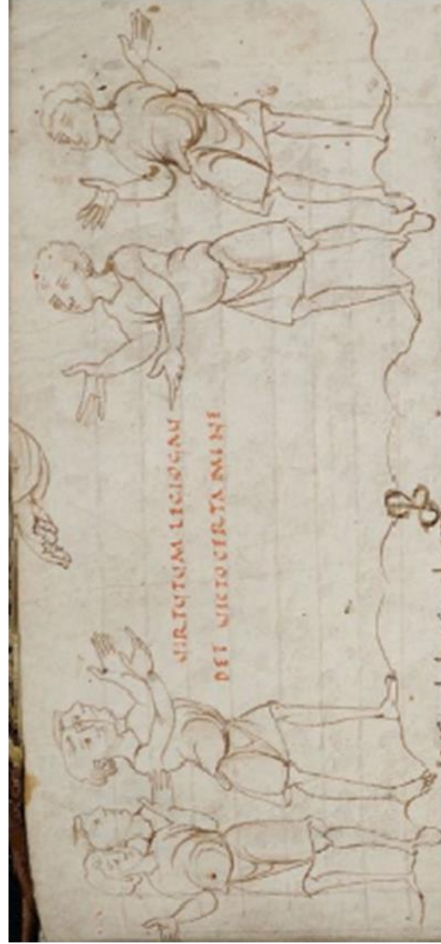 UIRTUTUM LEGIO GAU
DET UICTO CERTAMINE